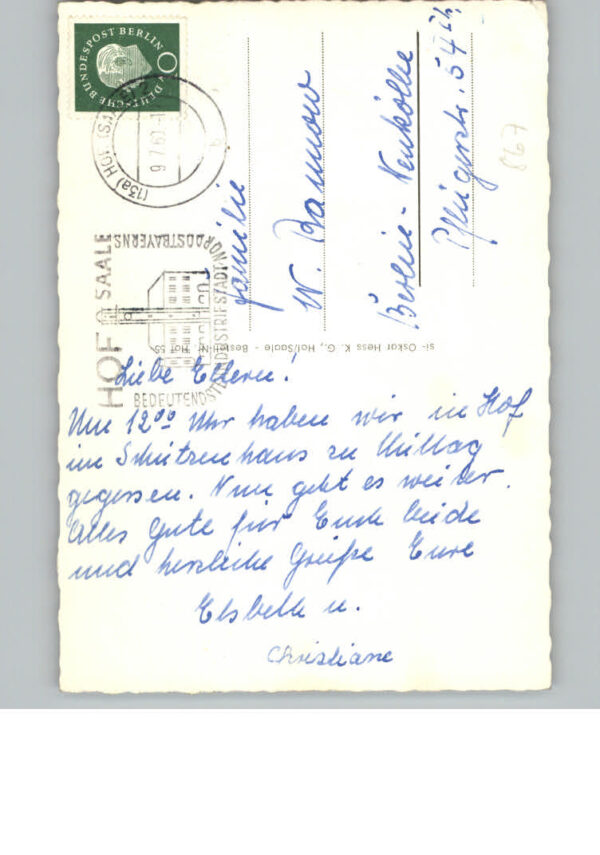 DEUTSCHE BUNDESPOST BERLIN
(13a) HOF (SAALE) 2
9.7.60-1
b
HOF SAALE
BEDEUTENDSTE INDUSTRIESTADT NORDOSTBAYERNS
Familie
W. Rannow
Berlin-Neukölln
Pflügerstr. 54
867
Oskar Hess K. G., Hof/Saale - Bestell-Nr. Hof 55
Liebe Eltern!
Um 12⁰⁰ Uhr haben wir in Hof
im Schützenhaus zu Mittag
gegessen. Nun geht es weiter.
Alles Gute für Euch beide
und herzliche Grüße Eure
Elsbeth u.
Christiane